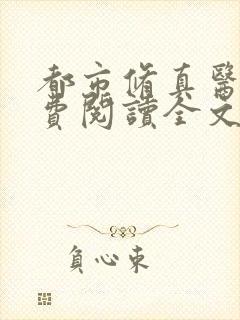 都市脩真醫
費閱讀全文
負心束